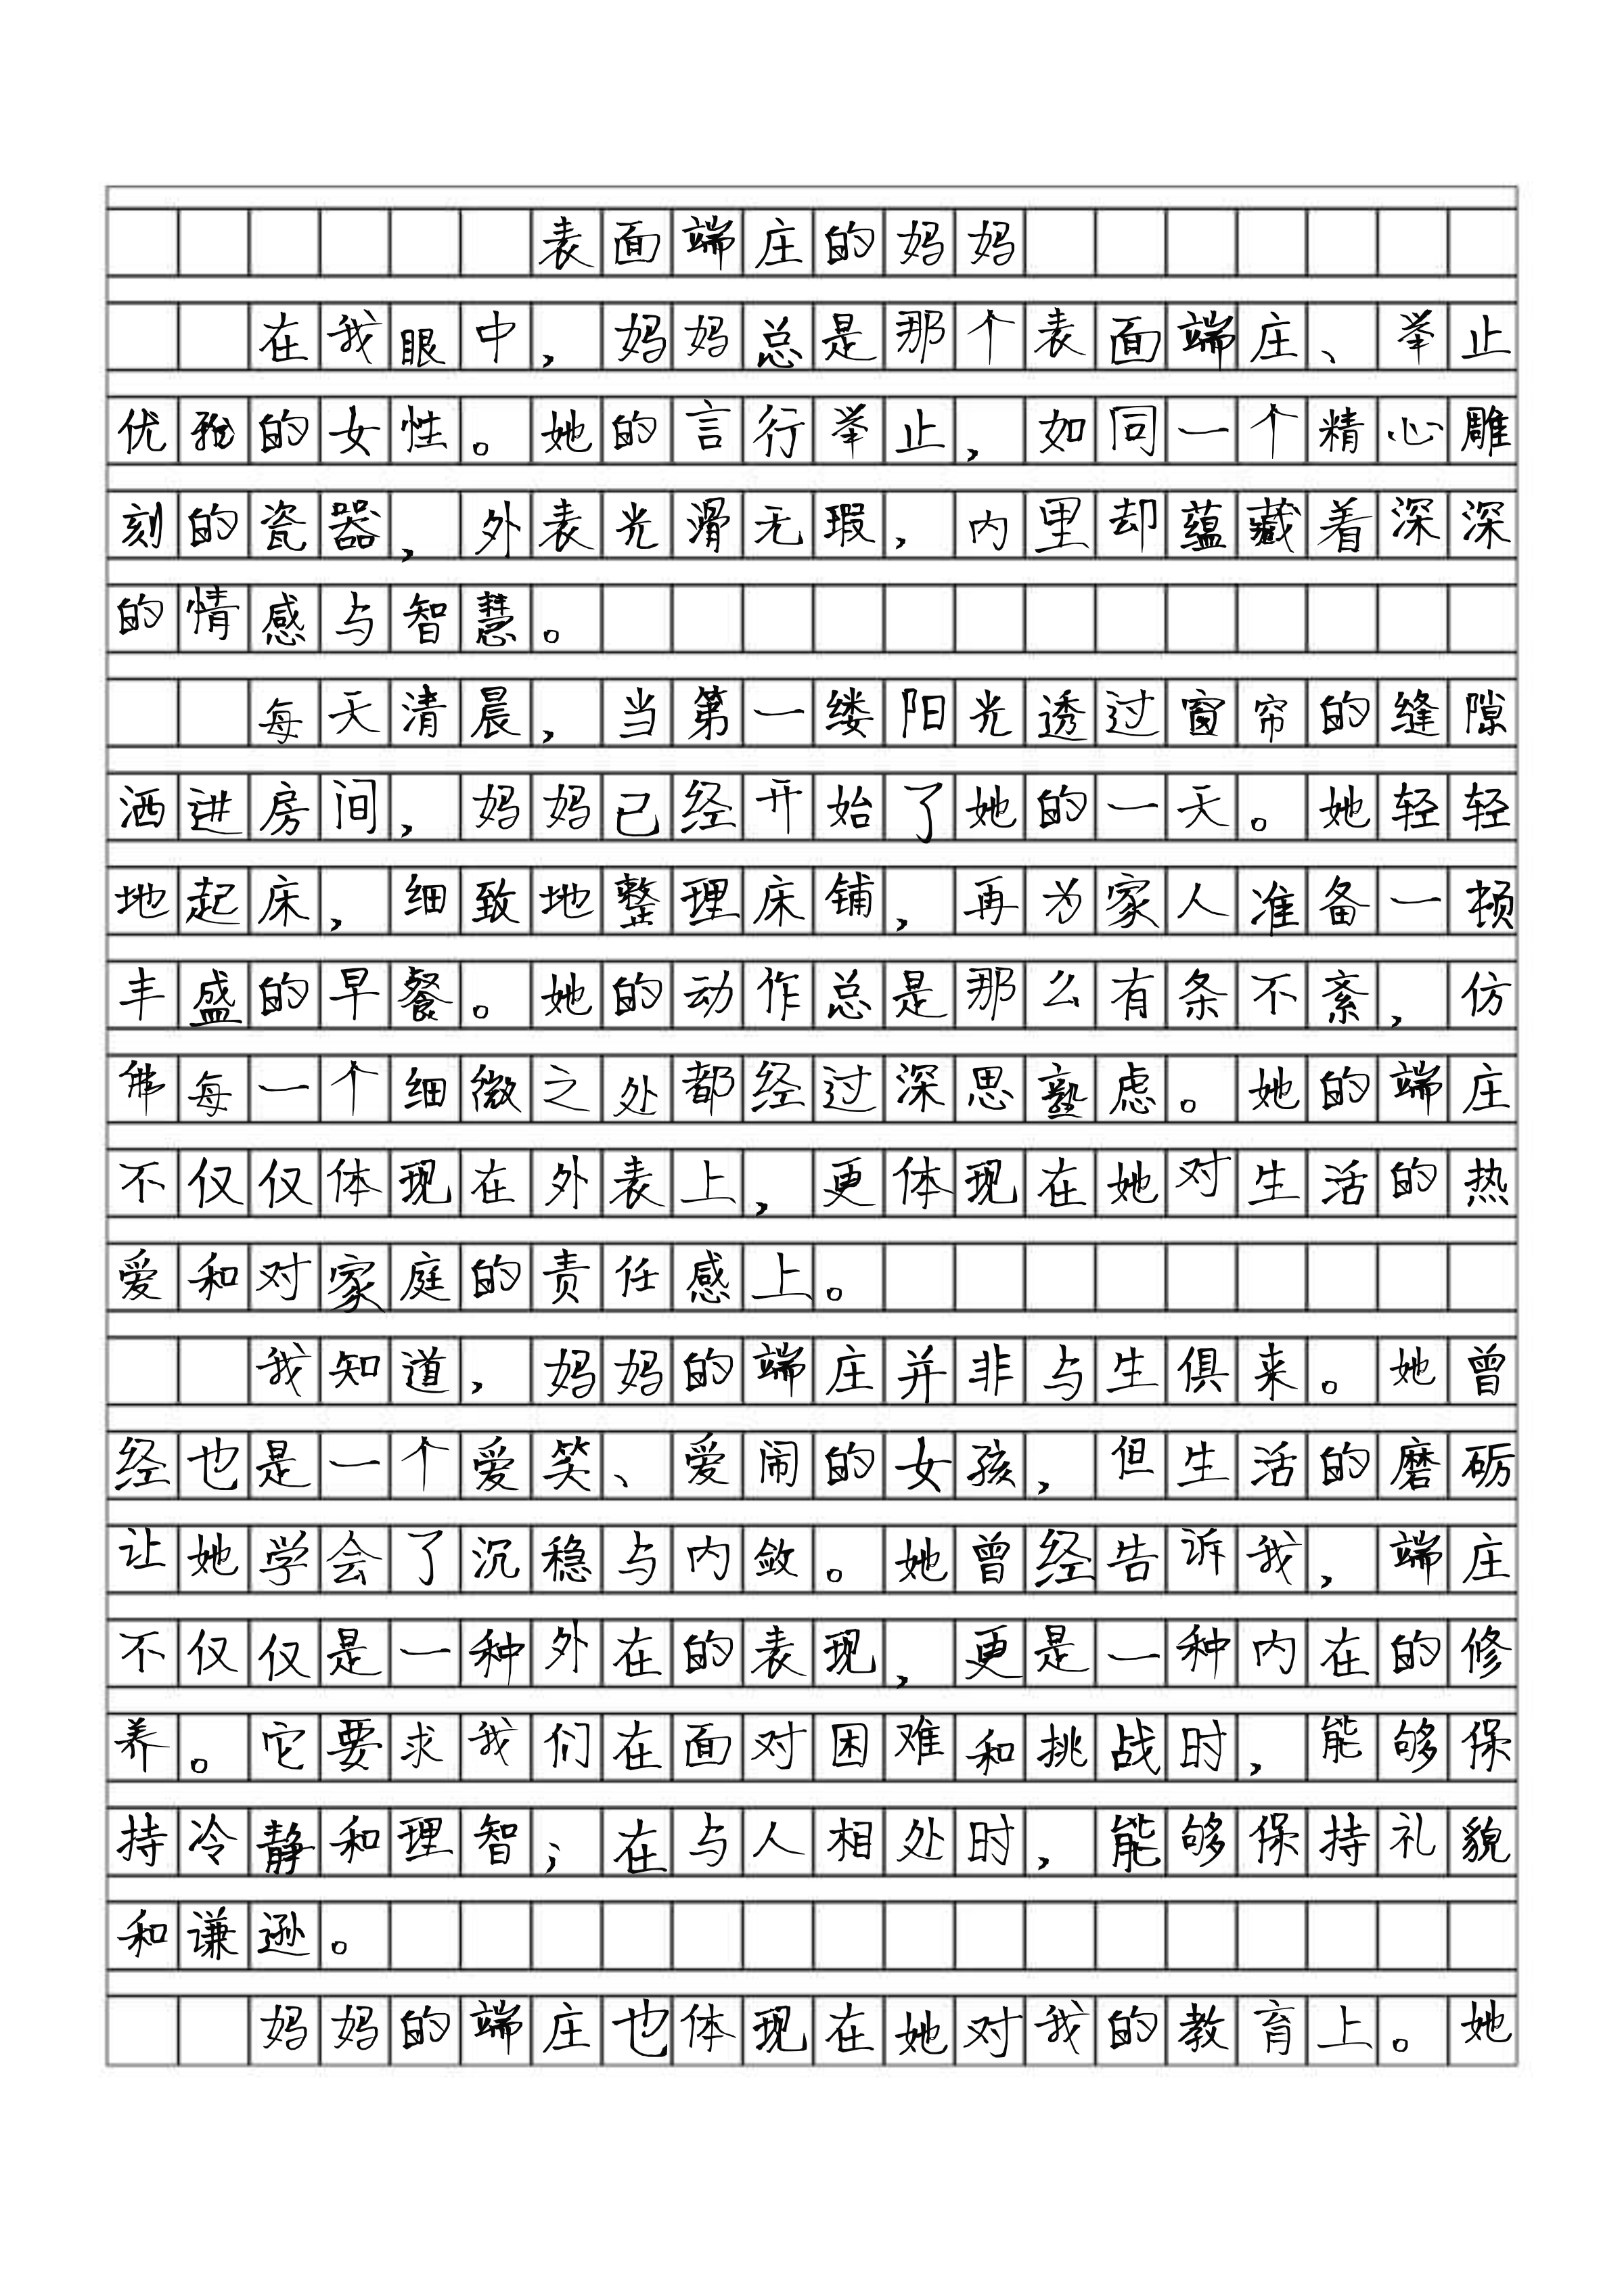 表面端庄的妈妈
在我眼中，妈妈总是那个表面端庄、举止
优雅的女性。她的言行举止，如同一个精心雕
刻的瓷器，外表光滑无瑕，内里却蕴藏着深深
的情感与智慧。
每天清晨，当第一缕阳光透过窗帘的缝隙
洒进房间，妈妈已经开始了她的一天。她轻轻
地起床，细致地整理床铺，再为家人准备一顿
丰盛的早餐。她的动作总是那么有条不紊，仿
佛每一个细微之处都经过深思熟虑。她的端庄
不仅仅体现在外表上，更体现在她对生活的热
爱和对家庭的责任感上。
我知道，妈妈的端庄并非与生俱来。她曾
经也是一个爱笑、爱闹的女孩，但生活的磨砺
让她学会了沉稳与内敛。她曾经告诉我，端庄
不仅仅是一种外在的表现，更是一种内在的修
养。它要求我们在面对困难和挑战时，能够保
持冷静和理智；在与人相处时，能够保持礼貌
和谦逊。
妈妈的端庄也体现在她对我的教育上。她